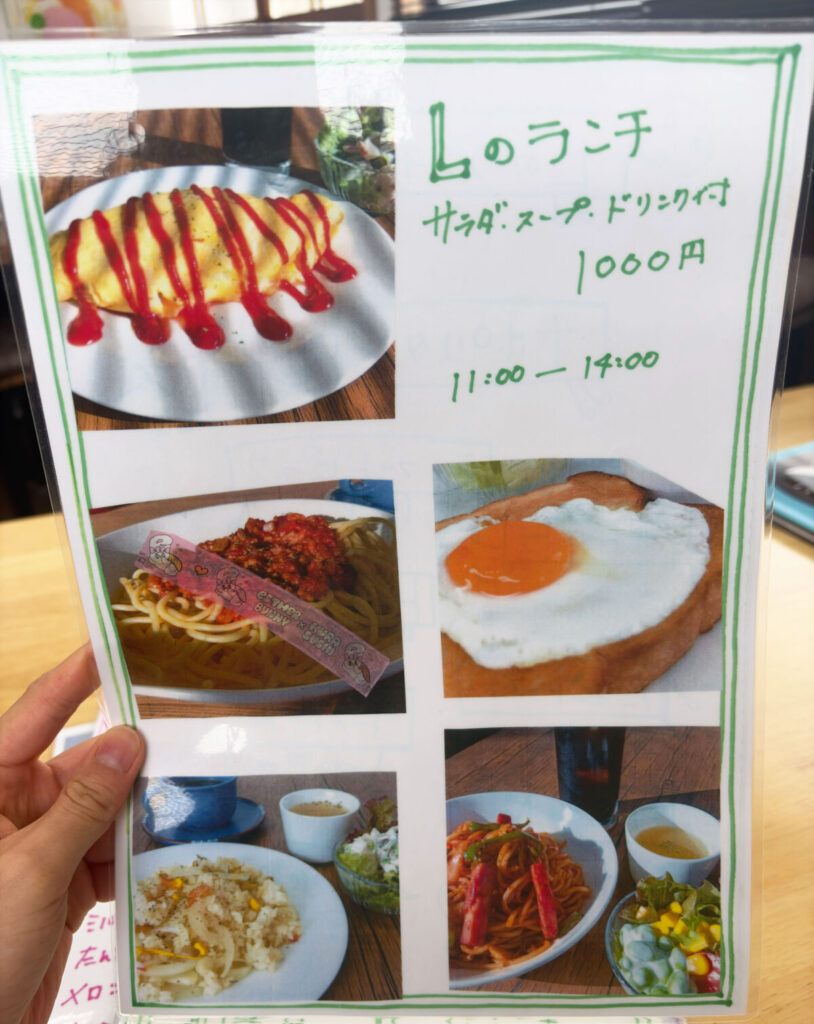 Lのランチ
サラダ・スープ・ドリンク付
1000円
11:00 — 14:00